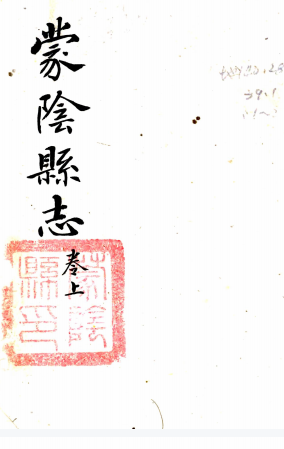 蒙陰縣志
卷上
蒙陰
縣印